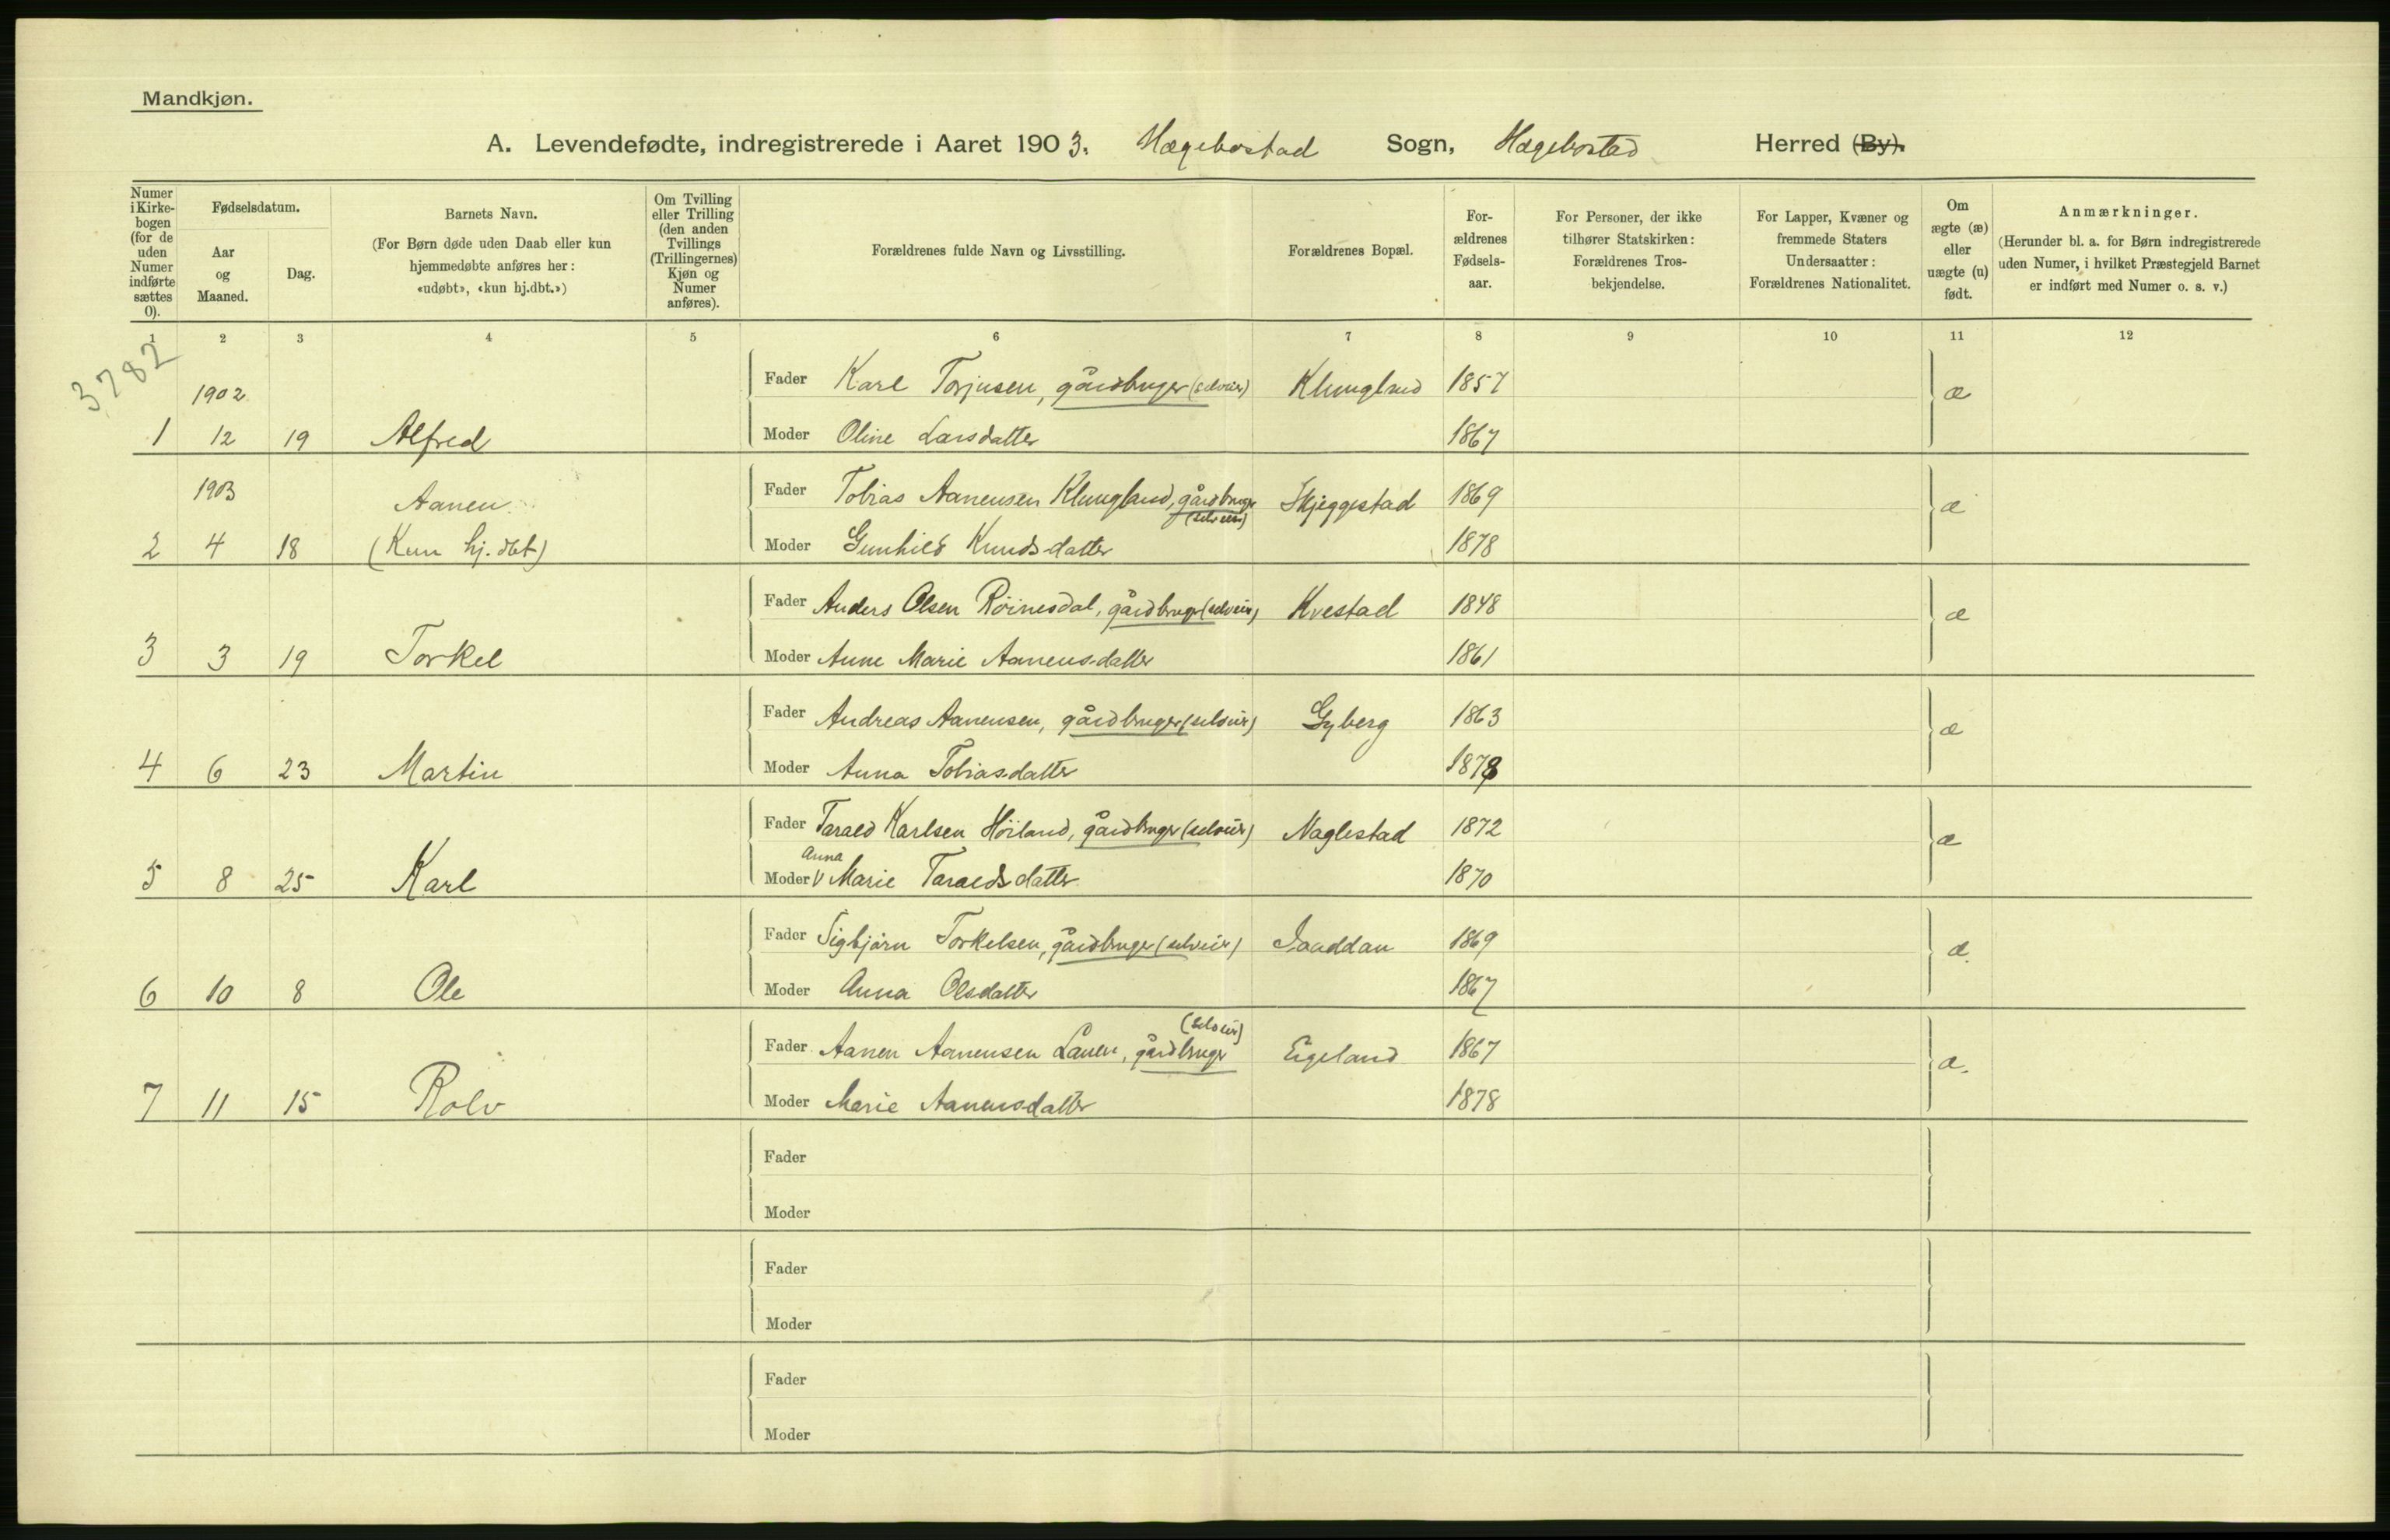 Mandkjøn.
A. Levendefødte, indregistrerede i Aaret 1903. Hægebostad Sogn, Hægebostad Herred (By).
Numer i Kirke-bogen (for de uden Numer indførte sættes 0).
Fødselsdatum.
Aar og Maaned.
Dag.
Barnets Navn.
(For Børn døde uden Daab eller kun hjemmedøbte anføres her: «udøbt», «kun hj.dbt.»)
Om Tvilling eller Trilling (den anden Tvillings (Trillingernes) Kjøn og Numer anføres).
Forældrenes fulde Navn og Livsstilling.
Forældrenes Bopæl.
For-ældrenes Fødsels-aar.
For Personer, der ikke tilhører Statskirken: Forældrenes Tros-bekjendelse.
For Lapper, Kvæner og fremmede Staters Undersaatter: Forældrenes Nationalitet.
Om ægte (æ) eller uægte (u) født.
Anmærkninger.
(Herunder bl. a. for Børn indregistrerede uden Numer, i hvilket Præstegjeld Barnet er indført med Numer o. s. v.)
1 2 3 4 5 6 7 8 9 10 11 12
3782
1902 Fader Karl Torjusen, gårdbruger (selveier) Klungland 1857 æ
1 12 19 Alfred Moder Oline Larsdatter 1867
1903 Aanen Fader Tobias Aanensen Klungland, gårdbruger (selveier) Skjeggestad 1869 æ
2 4 18 (Kun hj. dbt) Moder Gunhild Knudsdatter 1878
Fader Anders Olsen Röinesdal, gårdbruger (selveier) Kvestad 1848 æ
3 3 19 Torkel Moder Anne Marie Aanensdatter 1861
Fader Andreas Aanensen, gårdbruger (selveier) Gyberg 1863 æ
4 6 23 Martin Moder Anna Tobiasdatter 1878
Fader Tarald Karlsen Höiland, gårdbruger (selveier) Naglestad 1872 æ
5 8 25 Karl Moder Anna Marie Taraldsdatter 1870
Fader Sigbjörn Torkelsen, gårdbruger (selveier) 1869 æ.
6 10 8 Ole Moder Anna Olsdatter 1867
Fader Aanen Aanensen Lauen, gårdbruger (selveier) Eigeland 1867 æ.
7 11 15 Rolv Moder Marie Aanensdatter 1878
Fader
Moder
Fader
Moder
Fader
Moder